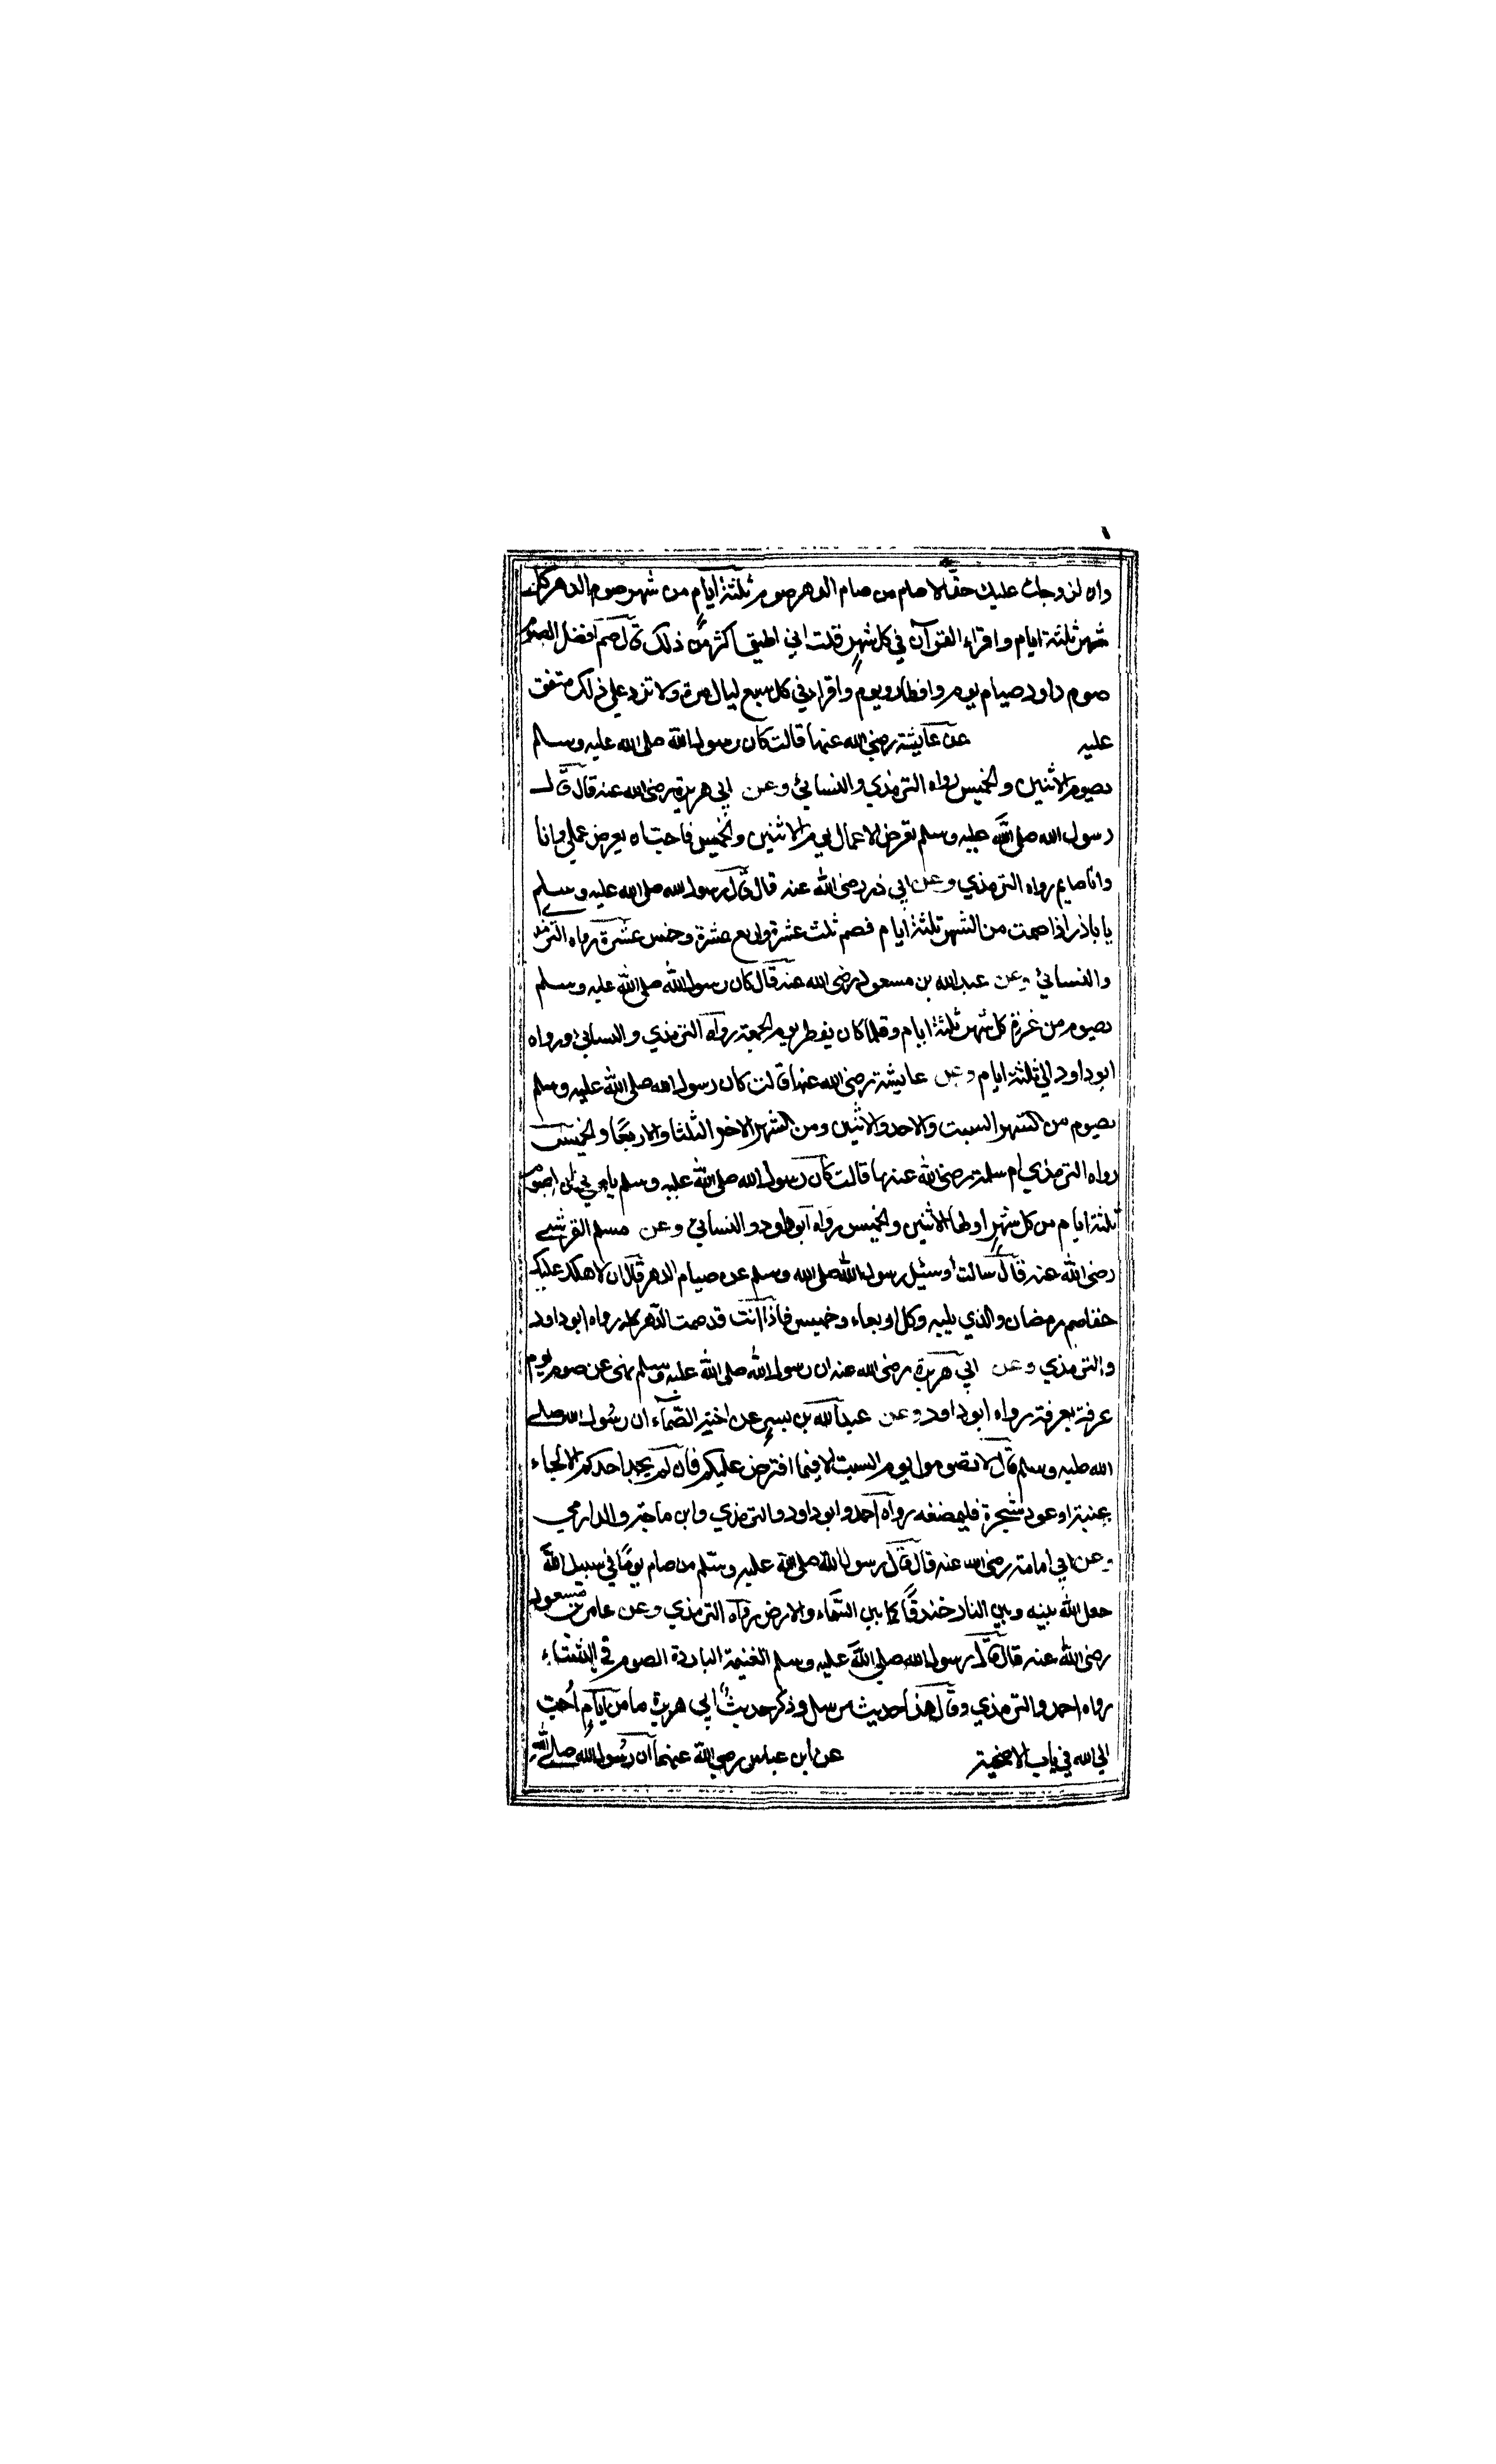 وان لزوجك عليك حقا لا صام من صام الدهر صوم ثلثة ايام من شهر صوم الدهر كله
شهر ثلثة ايام واقراء القرآن في كل شهر قلت اني اطيق اكثر من ذلك قال صم افضل الصوم
صوم داود صيام يوم وافطار ويوم واقراء في كل سبع ليال مرة ولا تزد على ذلك متفق
عليه عن عايشة رضي الله عنها قالت كان رسول الله صلى الله عليه وسلم
يصوم الاثنين والخميس رواه الترمذي والنسائي وعن ابي هريرة رضى الله عنه قال قال
رسول الله صلى الله عليه وسلم تعرض الاعمال يوم الاثنين والخميس فاحب ان يعرض عملي وانا
وانا صايم رواه الترمذي وعن ابي ذر رضى الله عنه قال قال رسول الله صلى الله عليه وسلم
يا باذر اذا صمت من الشهر ثلثة ايام فصم ثلث عشرة واربع عشرة وخمس عشرة رواه الترمذي
والنسائي وعن عبد الله بن مسعود رضى الله عنه قال كان رسول الله صلى الله عليه وسلم
يصوم من غرة كل شهر ثلثة ايام وقلما كان يفطر يوم الجمعة رواه الترمذي والنسائي ورواه
ابو داود الي ثلثة ايام وعن عايشة رضى الله عنها قالت كان رسول الله صلى الله عليه وسلم
يصوم من الشهر السبت والاحد والاثنين ومن الشهر الاخر الثلثا والاربعا والخميس
رواه الترمذي ام سلمة رضى الله عنها قالت كان رسول الله صلى الله عليه وسلم يامرني ان اصوم
ثلثة ايام من كل شهر اولها الاثنين والخميس رواه ابو داود والنسائي وعن مسلم القرشي
رضى الله عنه قال سالت او سئيل رسول الله صلى الله وسلم عن صيام الدهر قال ان لاهلك عليك
حقا صم رمضان والذي يليه وكل اربعاء وخميس فاذا انت قد صمت الدهر كله رواه ابو داود
والترمذي وعن ابي هريرة رضى الله عنه ان رسول الله صلى الله عليه وسلم نهى عن صوم يوم
عرفة بعرفة رواه ابو داود وعن عبد الله بن بسر عن اخته الصماء ان رسول الله صلى
الله عليه وسلم قال لا تصوموا يوم السبت الا فيما افترض عليكم فان لم يجد احدكم الا لحاء
عنبة او عود شجرة فليمضغه رواه احمد وابو داود والترمذي وابن ماجة والدارمي
وعن ابي امامة رضى الله عنه قال قال رسول الله صلى الله عليه وسلم من صام يوما في سبيل الله
جعل الله بينه وبين النار خندقا كما بين السماء والارض رواه الترمذي وعن عامر بن مسعود
رضى الله عنه قال قال رسول الله صلى الله عليه وسلم الغنيمة الباردة الصوم في الشتاء
رواه احمد والترمذي وقال هذا حديث مرسل وذكر حديث ابي هريرة ما من ايام احب
الي الله في باب الاضحية عن ابن عباس رضي الله عنهما ان رسول الله صلى الله